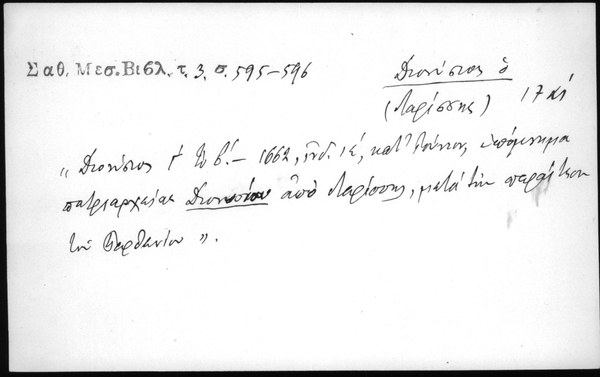 Σαθ. Μεσ. Βιβλ. τ. 3. σ. 595-596
Διονύσιος ὁ
(Λαρίσσης) 17 αἰ
"Διονύσιος Γ΄ — 1662, ἰνδ. ιε΄, κατ' Ἰούνιον, ὑπόμνημα
πατριαρχείας Διονυσίου ἀπὸ Λαρίσσης, μετὰ τὴν παραίτησιν
τοῦ Παρθενίου".